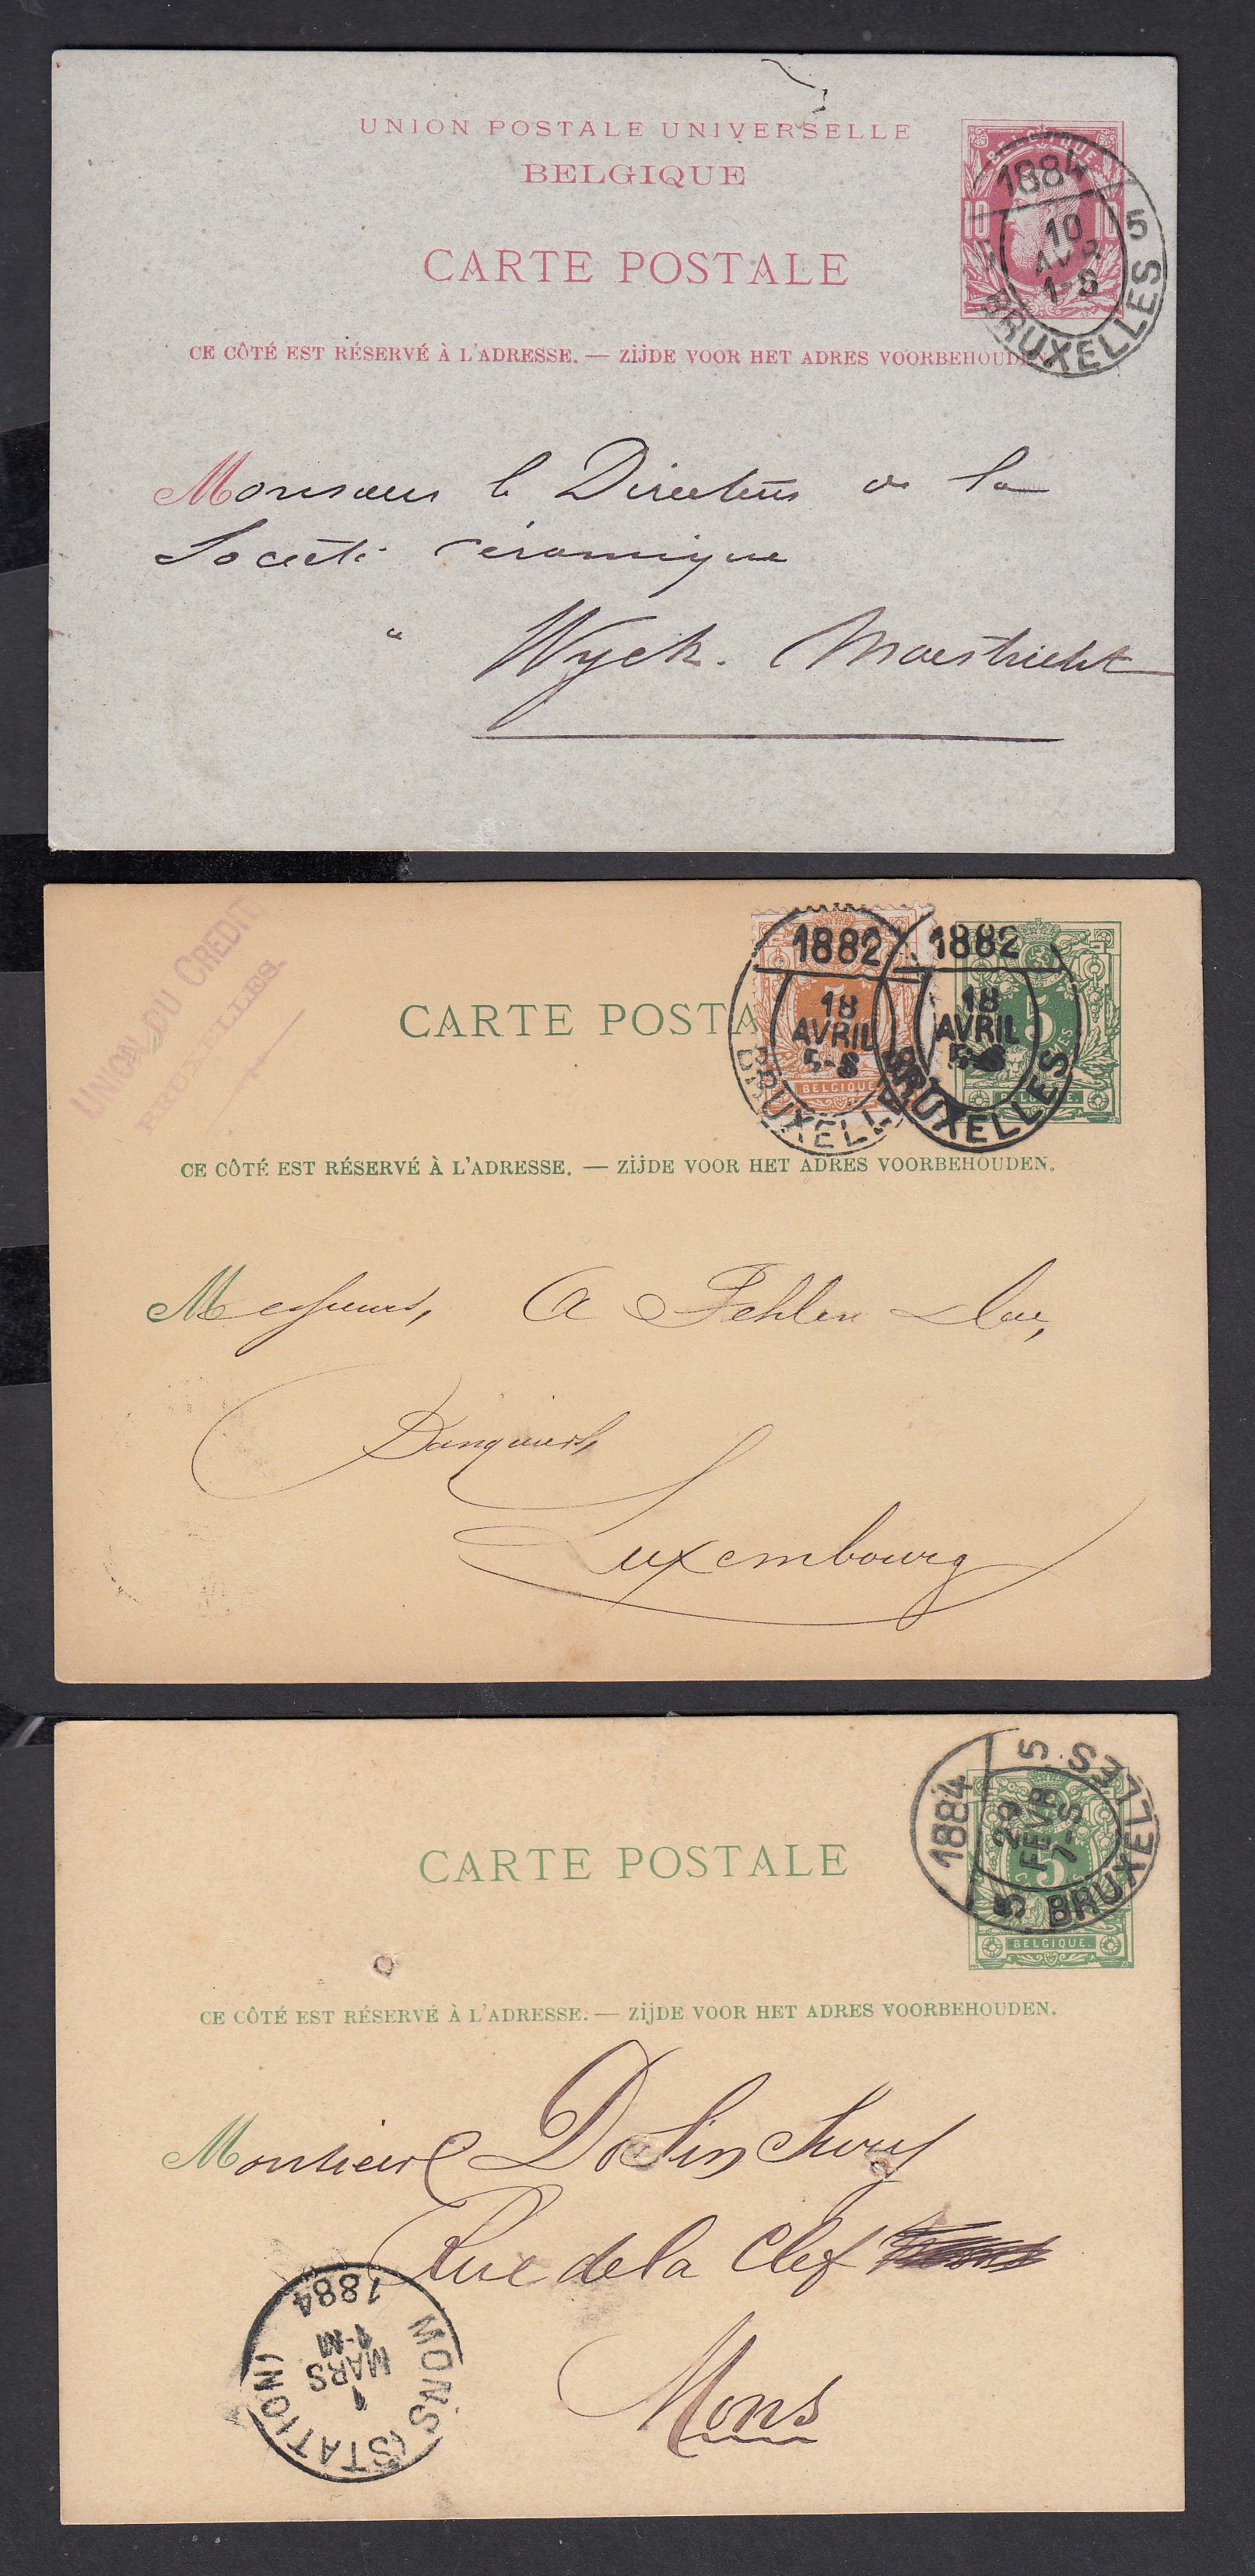 UNION POSTALE UNIVERSELLE
BELGIQUE
CARTE POSTALE
BELGIQUE
10 10
1884
10
AVR
1-S
5
BRUXELLES
CE CÔTÉ EST RÉSERVÉ À L'ADRESSE. — ZIJDE VOOR HET ADRES VOORBEHOUDEN.
Monsieur le Directeur de la
Société céramique
" Wyck. Maestricht
UNION DU CREDIT
BRUXELLES.
CARTE POSTA
1882
18
AVRIL
5-S
BRUXELLES
BELGIQUE
1882
18
AVRIL
5-S
BRUXELLES
5
CE CÔTÉ EST RÉSERVÉ À L'ADRESSE. — ZIJDE VOOR HET ADRES VOORBEHOUDEN.
Messieurs, A Fehlen
Banquiers,
Luxembourg
CARTE POSTALE
1884
29
FEVR
7-S
5 BRUXELLES 5
5
BELGIQUE
CE CÔTÉ EST RÉSERVÉ À L'ADRESSE. — ZIJDE VOOR HET ADRES VOORBEHOUDEN.
Monsieur
Rue de la Clef
Mons
MONS (STATION)
1
MARS
1-M
1884